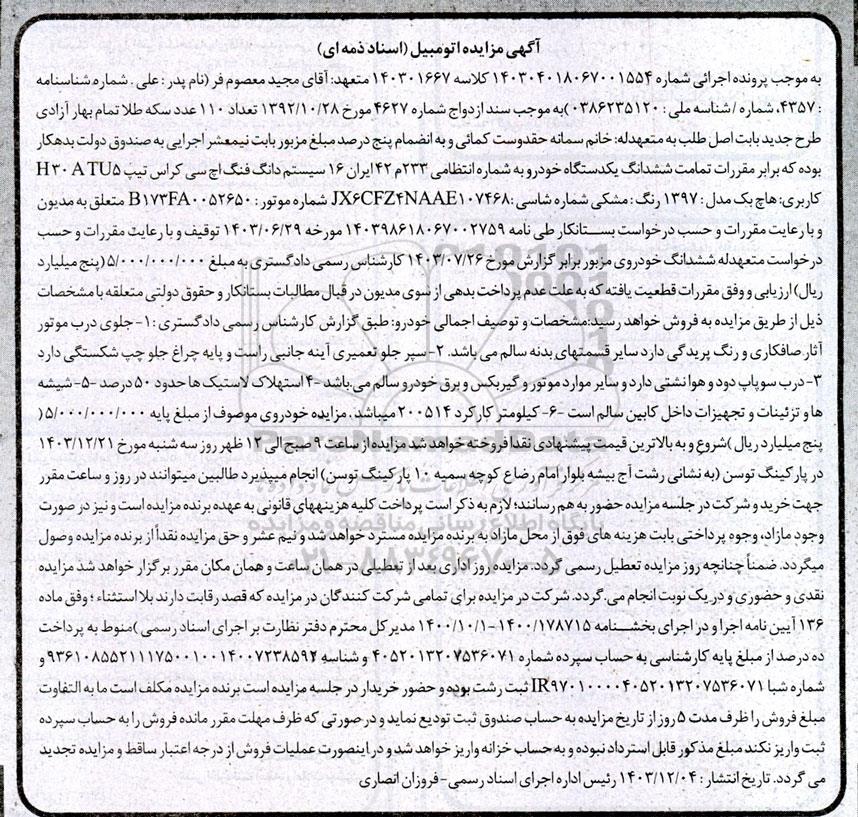 آگهی مزایده اتومبیل (اسناد ذمه ای)
به موجب پرونده اجرائی شماره ۱۴۰۳۰۴۰۱۸۰۶۷۰۰۱۵۵۴ کلاسه ۱۴۰۳۰۱۶۶۷ متعهد: آقای مجید معصوم فر (نام پدر : علی . شماره شناسنامه
: ۴۳۵۷، شماره / شناسه ملی : ۰۳۸۶۲۳۵۱۲۰)به موجب سند ازدواج شماره ۴۶۲۷ مورخ ۱۳۹۲/۱۰/۲۸ تعداد ۱۱۰ عدد سکه طلا تمام بهار آزادی
طرح جدید بابت اصل طلب به متعهدله: خانم سمانه حقدوست کمائی و به انضمام پنج درصد مبلغ مزبور بابت نیمعشر اجرایی به صندوق دولت بدهکار
بوده که برابر مقررات تمامت ششدانگ یکدستگاه خودرو به شماره انتظامی ۲۳۳م ۴۲ ایران ۱۶ سیستم دانگ فنگ اچ سی کراس تیپ H۳۰ ATU۵
کاربری: هاچ بک مدل : ۱۳۹۷ رنگ : مشکی شماره شاسی: JX۶CFZ۴NAAE۱۰۷۴۶۸ شماره موتور : B۱۷۳FA۰۰۵۲۶۵۰ متعلق به مدیون
و با رعایت مقررات و حسب درخواست بستانکار طی نامه ۱۴۰۳۹۸۶۱۸۰۶۷۰۰۲۷۵۹ مورخه ۱۴۰۳/۰۶/۲۹ توقیف و با رعایت مقررات و حسب
درخواست متعهدله ششدانگ خودروی مزبور برابر گزارش مورخ ۱۴۰۳/۰۷/۲۶ کارشناس رسمی دادگستری به مبلغ ۵/۰۰۰/۰۰۰/۰۰۰ (پنج میلیارد
ریال) ارزیابی و وفق مقررات قطعیت یافته که به علت عدم پرداخت بدهی از سوی مدیون در قبال مطالبات بستانکار و حقوق دولتی متعلقه با مشخصات
ذیل از طریق مزایده به فروش خواهد رسید:مشخصات و توصیف اجمالی خودرو: طبق گزارش کارشناس رسمی دادگستری : ۱- جلوی درب موتور
آثار صافکاری و رنگ پریدگی دارد سایر قسمتهای بدنه سالم می باشد. ۲- سپر جلو تعمیری آینه جانبی راست و پایه چراغ جلو چپ شکستگی دارد
۳- درب سوپاپ دود و هوا نشتی دارد و سایر موارد موتور و گیربکس و برق خودرو سالم می.باشد -۴ استهلاک لاستیک ها حدود ۵۰ درصد -۵- شیشه
ها و تزئینات و تجهیزات داخل کابین سالم است -۶- کیلومتر کارکرد ۲۰۰۵۱۴ میباشد . مزایده خودروی موصوف از مبلغ پایه ۵/۰۰۰/۰۰۰/۰۰۰ (
پنج میلیارد ریال )شروع و به بالاترین قیمت پیشنهادی نقدا فروخته خواهد شد مزایده از ساعت ۹ صبح الی ۱۲ ظهر روز سه شنبه مورخ ۱۴۰۳/۱۲/۲۱
در پارکینگ توسن (به نشانی رشت آج بیشه بلوار امام رضاع کوچه سمیه ۱۰ پارکینگ توسن) انجام میپذیرد طالبین میتوانند در روز و ساعت مقرر
جهت خرید و شرکت در جلسه مزایده حضور به هم رسانند؛ لازم به ذکر است پرداخت کلیه هزینههای قانونی به عهده برنده مزایده است و نیز در صورت
وجود مازاد، وجوه پرداختی بابت هزینه های فوق از محل مازاد به برنده مزایده مسترد خواهد شد و نیم عشر و حق مزایده نقداً از برنده مزایده وصول
میگردد. ضمناً چنانچه روز مزایده تعطیل رسمی گردد. مزایده روز اداری بعد از تعطیلی در همان ساعت و همان مکان مقرر برگزار خواهد شد مزایده
نقدی و حضوری و در یک نوبت انجام می.گردد. شرکت در مزایده برای تمامی شرکت کنندگان در مزایده که قصد رقابت دارند بلا استثناء ؛ وفق ماده
۱۳۶ آیین نامه اجرا و در اجرای بخشنامه ۱۴۰۰/۱۷۸۷۱۵-۱۴۰۰/۱۰/۱ مدیر کل محترم دفتر نظارت بر اجرای اسناد رسمی )منوط به پرداخت
ده درصد از مبلغ پایه کارشناسی به حساب سپرده شماره ۴۰۵۲۰۱۳۲۰۷۵۳۶۰۷۱ و شناسه ۹۳۶۱۰۸۵۵۲۱۱۱۷۵۰۰۱۰۰۱۴۰۰۷۲۳۸۵۹۲ و
شماره شبا IR۹۷۰۱۰۰۰۰۴۰۵۲۰۱۳۲۰۷۵۳۶۰۷۱ ثبت رشت بوده و حضور خریدار در جلسه مزایده است برنده مزایده مکلف است ما به التفاوت
مبلغ فروش را ظرف مدت ۵ روز از تاریخ مزایده به حساب صندوق ثبت تودیع نماید و در صورتی که ظرف مهلت مقرر مانده فروش را به حساب سپرده
ثبت واریز نکند مبلغ مذکور قابل استرداد نبوده و به حساب خزانه واریز خواهد شد و در اینصورت عملیات فروش از درجه اعتبار ساقط و مزایده تجدید
می گردد. تاریخ انتشار : ۱۴۰۳/۱۲/۰۴ رئیس اداره اجرای اسناد رسمی - فروزان انصاری